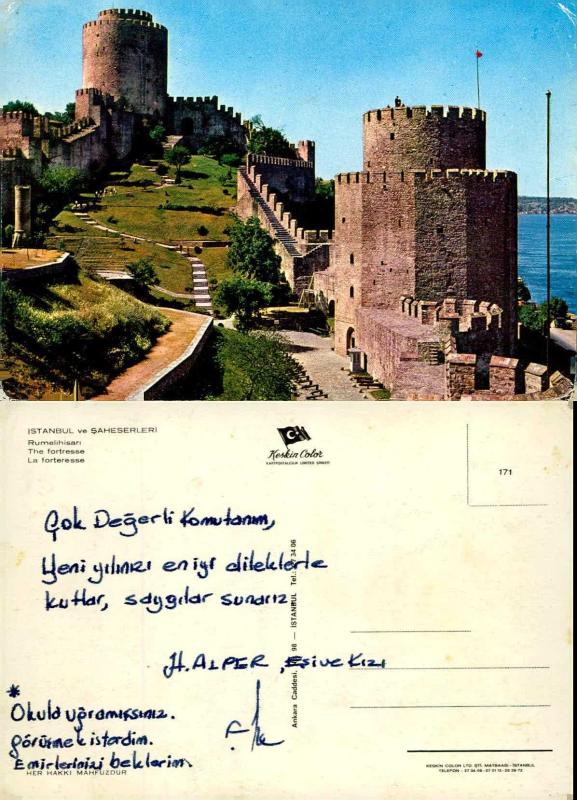 İSTANBUL ve ŞAHESERLERİ
Rumelihisarı
The fortresse
La forteresse
Keskin Color
KARTPOSTALCILIK LİMİTED ŞİRKETİ
171
Çok Değerli Komutanım,
Yeni yılınızı en iyi dileklerle
kutlar, saygılar sunarız
H. ALPER, Eşi ve Kızı
*
Okula uğramışsınız.
görüşmek isterdim.
Emirlerinizi beklerim.
HER HAKKI MAHFUZDUR
Ankara Caddesi, 98 — İSTANBUL Tel.: 34 06
KESKİN COLOR LTD. ŞTİ. MATBAASI - İSTANBUL
TELEFON :